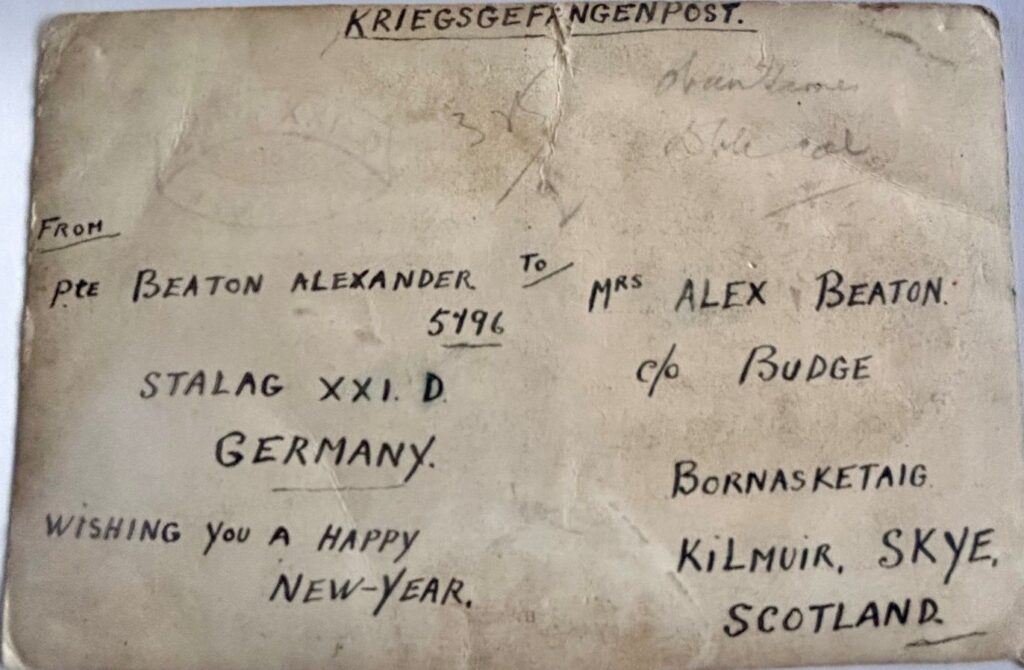 KRIEGSGEFANGENPOST.
FROM
Pte BEATON ALEXANDER
5796
STALAG XXI. D.
GERMANY.
WISHING YOU A HAPPY
NEW-YEAR.
TO
MRS ALEX BEATON.
c/o BUDGE
BORNASKETAIG
KILMUIR, SKYE,
SCOTLAND.